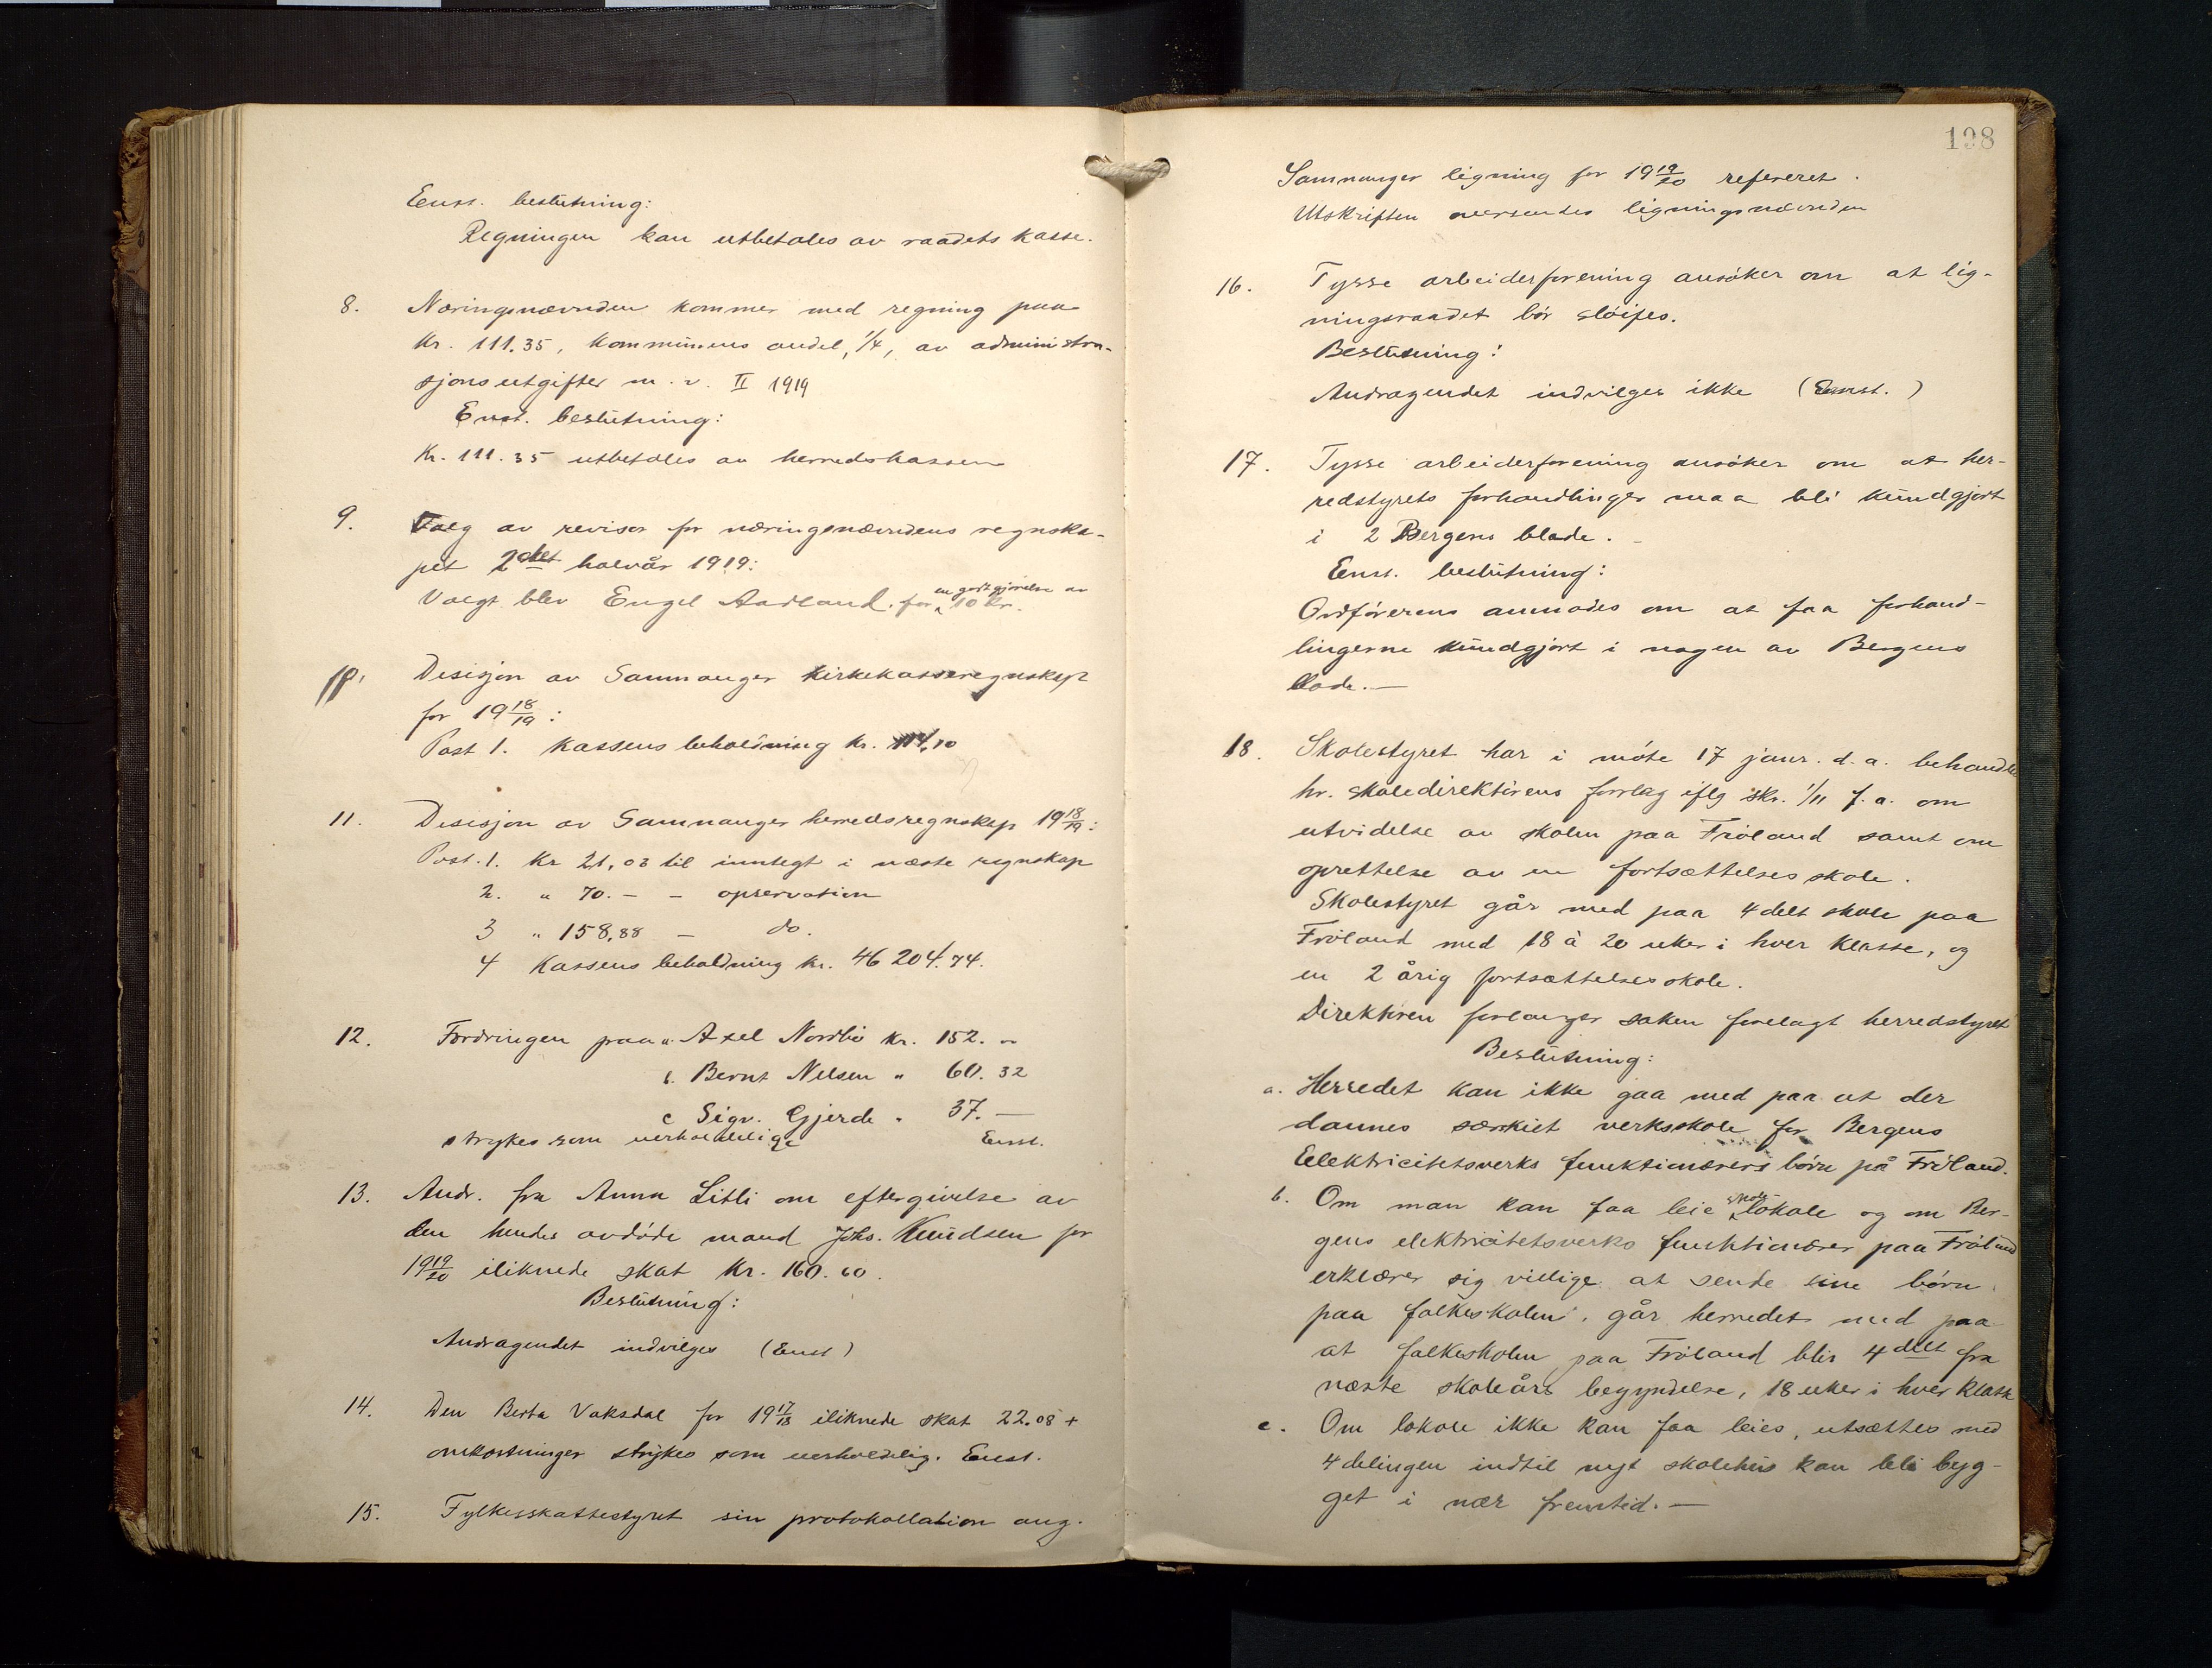 Enst. beslutning:
Regningen kan utbetales av raadets kasse.
8. Næringsnævnden kommer med regning paa
Kr. 111.35, kommunens andel, 1/4, av administra-
sjonsutgifter m. v. II 1919
Enst. beslutning:
Kr. 111.35 utbetales av herredskassen
9. Valg av revisor for næringsnævndens regnska-
pet 2det halvår 1919:
en godtgjørelse av
Valgt blev Engel Aadland. for 10 kr.
10. Desisjon av Samnanger kirkekasseregnskap
for 19 18/19:
Post 1. Kassens beholdning kr. 114,10
11. Desisjon av Samnanger herredsregnskap 19 18/19:
Post. 1. Kr 21,03 til inntegt i næste regnskap
2. " 70. - - opservation
3 " 158,88 - do.
4 Kassens beholdning kr. 46 204.74.
12. Fordringen paa a. Axel Nordbø kr. 152. "
b. Bernt Nelsen " 60. 32
c Sigv. Gjerde " 37. —
strykes som uerholdelige Enst.
13. Andr. fra Anna Litli om eftergivelse av
den hendes avdøde mand Johs. Knudsen for
19 19/20 iliknede skat Kr. 160.60.
Beslutning:
Andragendet indvilges (Enst)
14. Den Berta Vaksdal for 19 17/18 iliknede skat 22.08 +
omkostninger strykes som uerholdelig. Enst.
15. Fylkesskattestyret sin protokollation ang.
198
Samnanger ligning for 19 19/20 refereret.
Utskriften oversendes ligningsnævnden
16. Tysse arbeiderforening ansøker om at lig-
ningsraadet bør sløifes.
Beslutning:
Andragendet indvilges ikke (Enst.)
17. Tysse arbeiderforening ansøker om at her-
redstyrets forhandlinger maa bli kundgjort
i 2 Bergens blade. -
Enst. beslutning:
Ordførerens anmodes om at faa forhand-
lingerne kundgjort i nogen av Bergens
blade.—
18. Skolestyret har i møte 17 janr. d.a. behandle
hr. skoledirektørens forslag iflg skr. 1/11 f.a. om
utvidelse av skolen paa Frøland samt om
oprettelse av en fortsættelsesskole.
Skolestyret går med paa 4 delt skole paa
Frøland med 18 à 20 uker i hver klasse, og
en 2 årig fortsættelsesskole.
Direktøren forlanger saken forelagt herredstyret
Beslutning:
a. Herredet kan ikke gaa med paa at der
dannes særskiet verksskole for Bergens
Eelektricitetsverks funktionærers børn på Frøland.
b. Om man kan faa leie skole-lokale og om Ber-
gens elektricitetsverks funktionærer paa Frøland
erklærer sig villige at sende sine børn
paa folkeskolen, går herredet med paa
at folkeskolen paa Frøland blir 4 delt fra
næste skoleårs begyndelse, 18 uker i hver klasse
c. Om lokale ikke kan faa leies, utsættes med
4 delingen indtil nyt skolehus kan bli byg-
get i nær fremtid.—